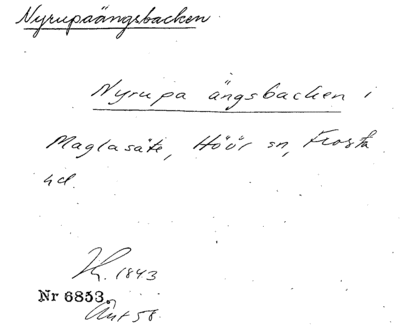 Nyrupaängsbacken
Nyrupa ängsbacken i
Maglasäte, Höör sn, Frosta
hd.
1843
Nr 6853.
58